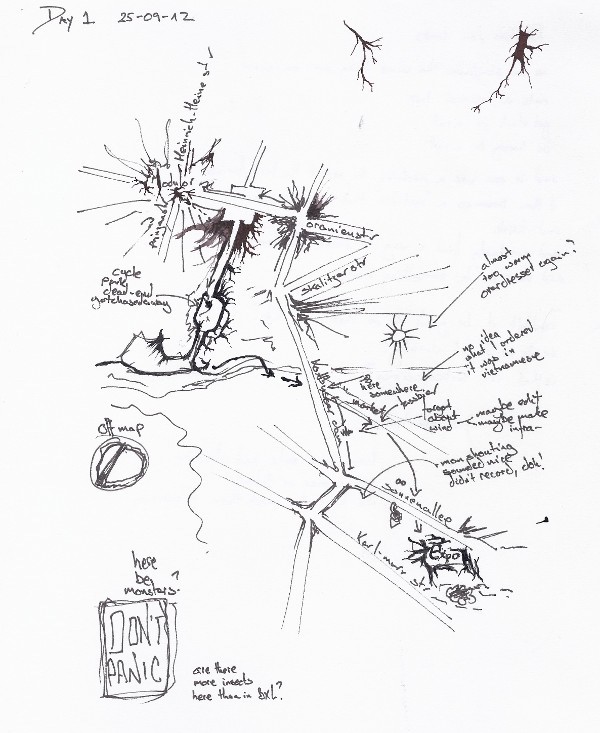 Day 1 25-09-12
Heinrich-Heine str
Modulor
oranienstr
skalitzerstr
cycle
park
dead-end
almost
too warm
overdressed again?
no idea
what I ordered
it was in
vietnamese
here
somewhere
market
forget
about
wind
maybe edit
maybe make
infra-
man shouting
sounded nice
didn't record, doh!
off map
sonnenallee
Karl-marx str
Expo
here
be
monsters?
DON'T
PANIC
are there
more insects
here than in BXL?